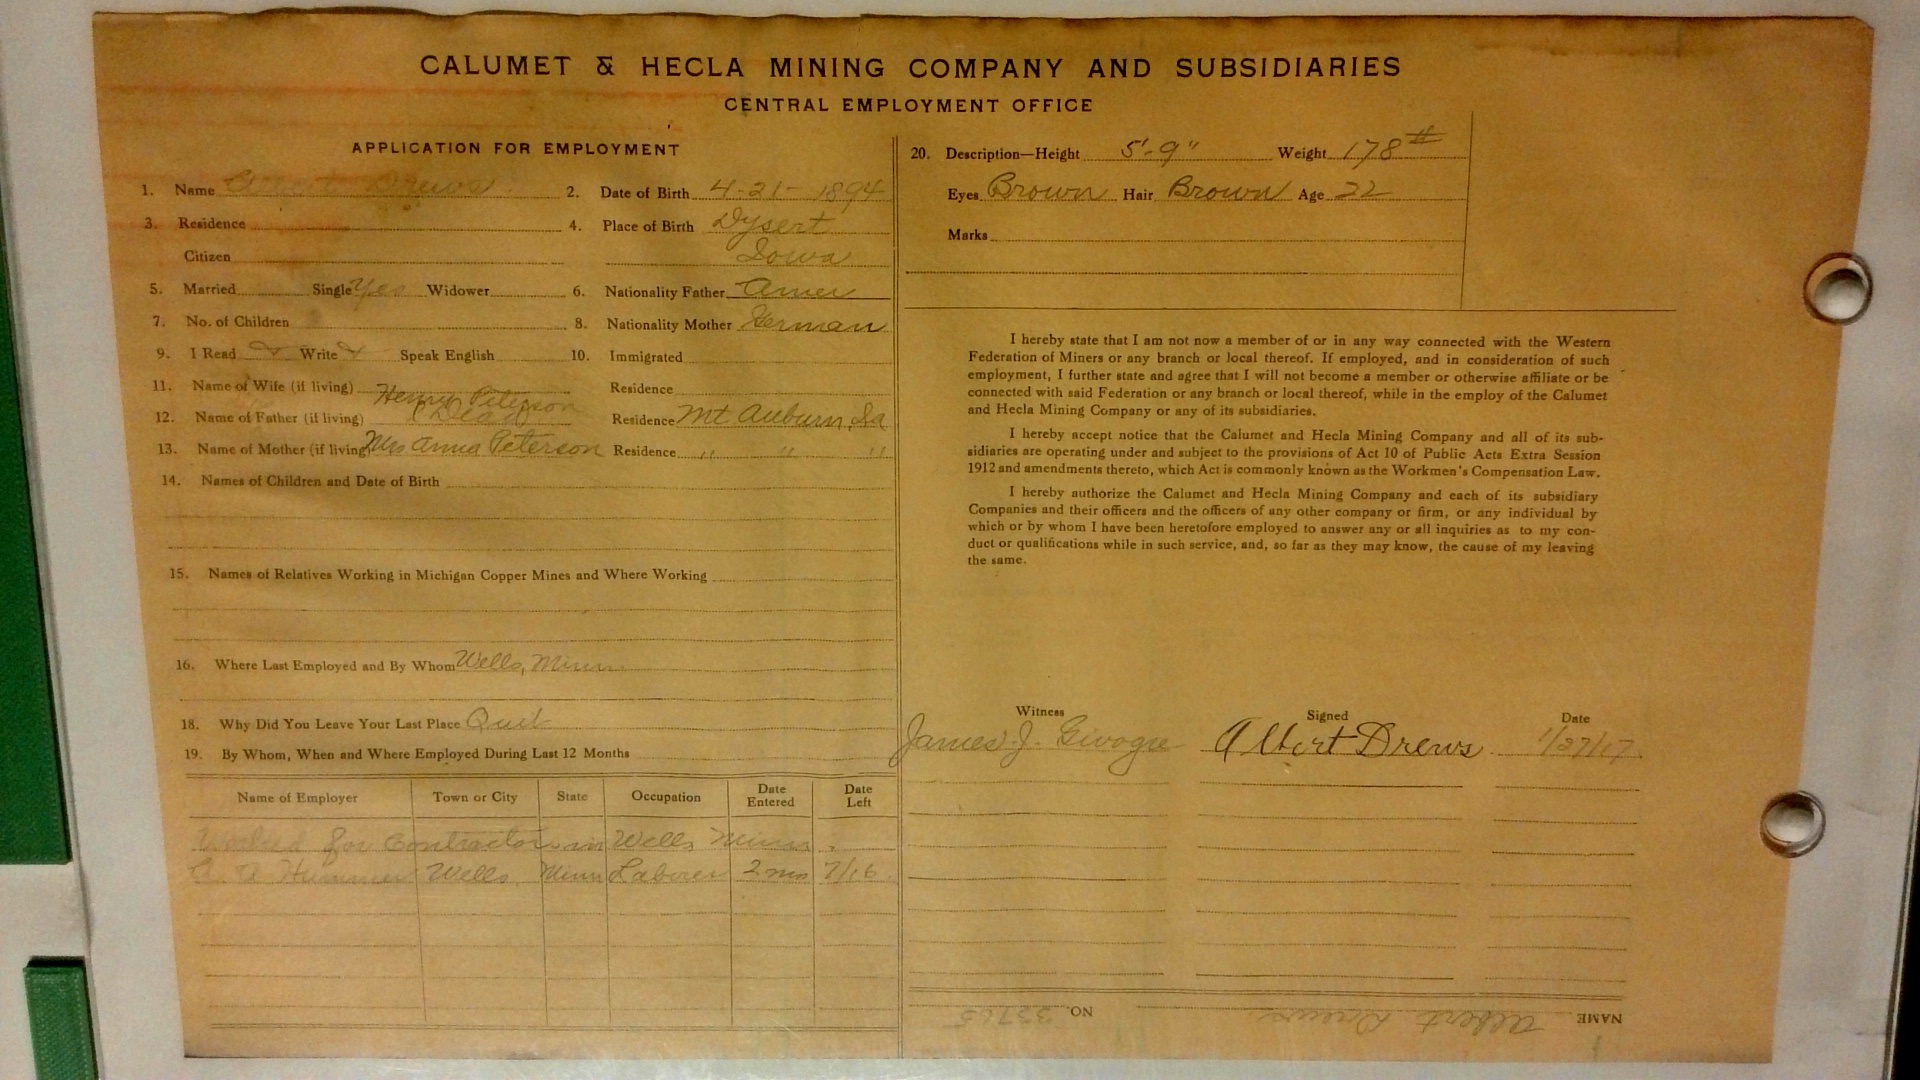 CALUMET & HECLA MINING COMPANY AND SUBSIDIARIES
CENTRAL EMPLOYMENT OFFICE
APPLICATION FOR EMPLOYMENT
1. Name Albert Drews 2. Date of Birth 4-21-1894
3. Residence 4. Place of Birth Dysert
Citizen Iowa
5. Married Single Yes Widower 6. Nationality Father Amer
7. No. of Children 8. Nationality Mother German
9. I Read Write Speak English 10. Immigrated
11. Name of Wife (if living) Residence
Henry Peterson
12. Name of Father (if living) (Dead) Residence Mt Auburn, Ia
13. Name of Mother (if living) Mrs Anna Peterson Residence " " "
14. Names of Children and Date of Birth
15. Names of Relatives Working in Michigan Copper Mines and Where Working
16. Where Last Employed and By Whom Wells, Minn.
18. Why Did You Leave Your Last Place Quit
19. By Whom, When and Where Employed During Last 12 Months
Name of Employer Town or City State Occupation Date Entered Date Left
Worked for Contractor in Wells Minn.
Hummer Wells, Minn Laborer 2 mo 7/16
20. Description—Height 5'-9" Weight 178#
Eyes Brown Hair Brown Age 22
Marks
I hereby state that I am not now a member of or in any way connected with the Western
Federation of Miners or any branch or local thereof. If employed, and in consideration of such
employment, I further state and agree that I will not become a member or otherwise affiliate or be
connected with said Federation or any branch or local thereof, while in the employ of the Calumet
and Hecla Mining Company or any of its subsidiaries.
I hereby accept notice that the Calumet and Hecla Mining Company and all of its sub-
sidiaries are operating under and subject to the provisions of Act 10 of Public Acts Extra Session
1912 and amendments thereto, which Act is commonly known as the Workmen's Compensation Law.
I hereby authorize the Calumet and Hecla Mining Company and each of its subsidiary
Companies and their officers and the officers of any other company or firm, or any individual by
which or by whom I have been heretofore employed to answer any or all inquiries as to my con-
duct or qualifications while in such service, and, so far as they may know, the cause of my leaving
the same.
Witness Signed Date
James J. Givogre Albert Drews 1/27/17
NAME Albert Drews NO. 33765